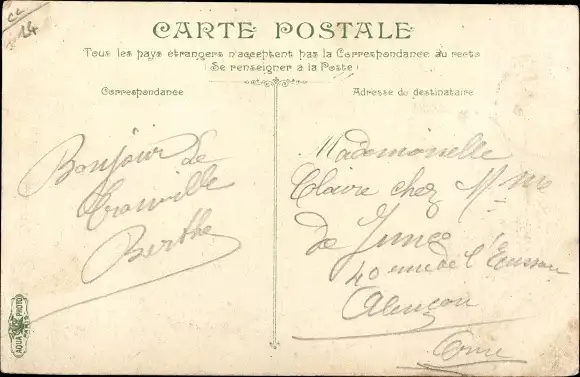 CARTE POSTALE
Tous les pays étrangers n'acceptent pas la Correspondance au recto
(Se renseigner à la Poste)
Correspondance
Adresse du destinataire
Bonjour de
Trouville
Berthe
Mademoiselle
Claire chez Mme
de
40 rue de l'Ecusson
Alençon
Orne
AQUA PHOTO
PARIS